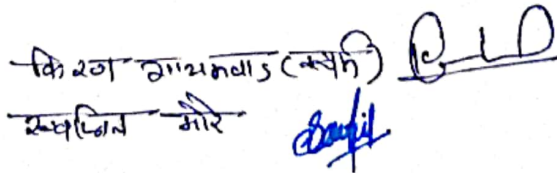 किरण गायकवाड (स्वयं)
स्वप्निल मोरे